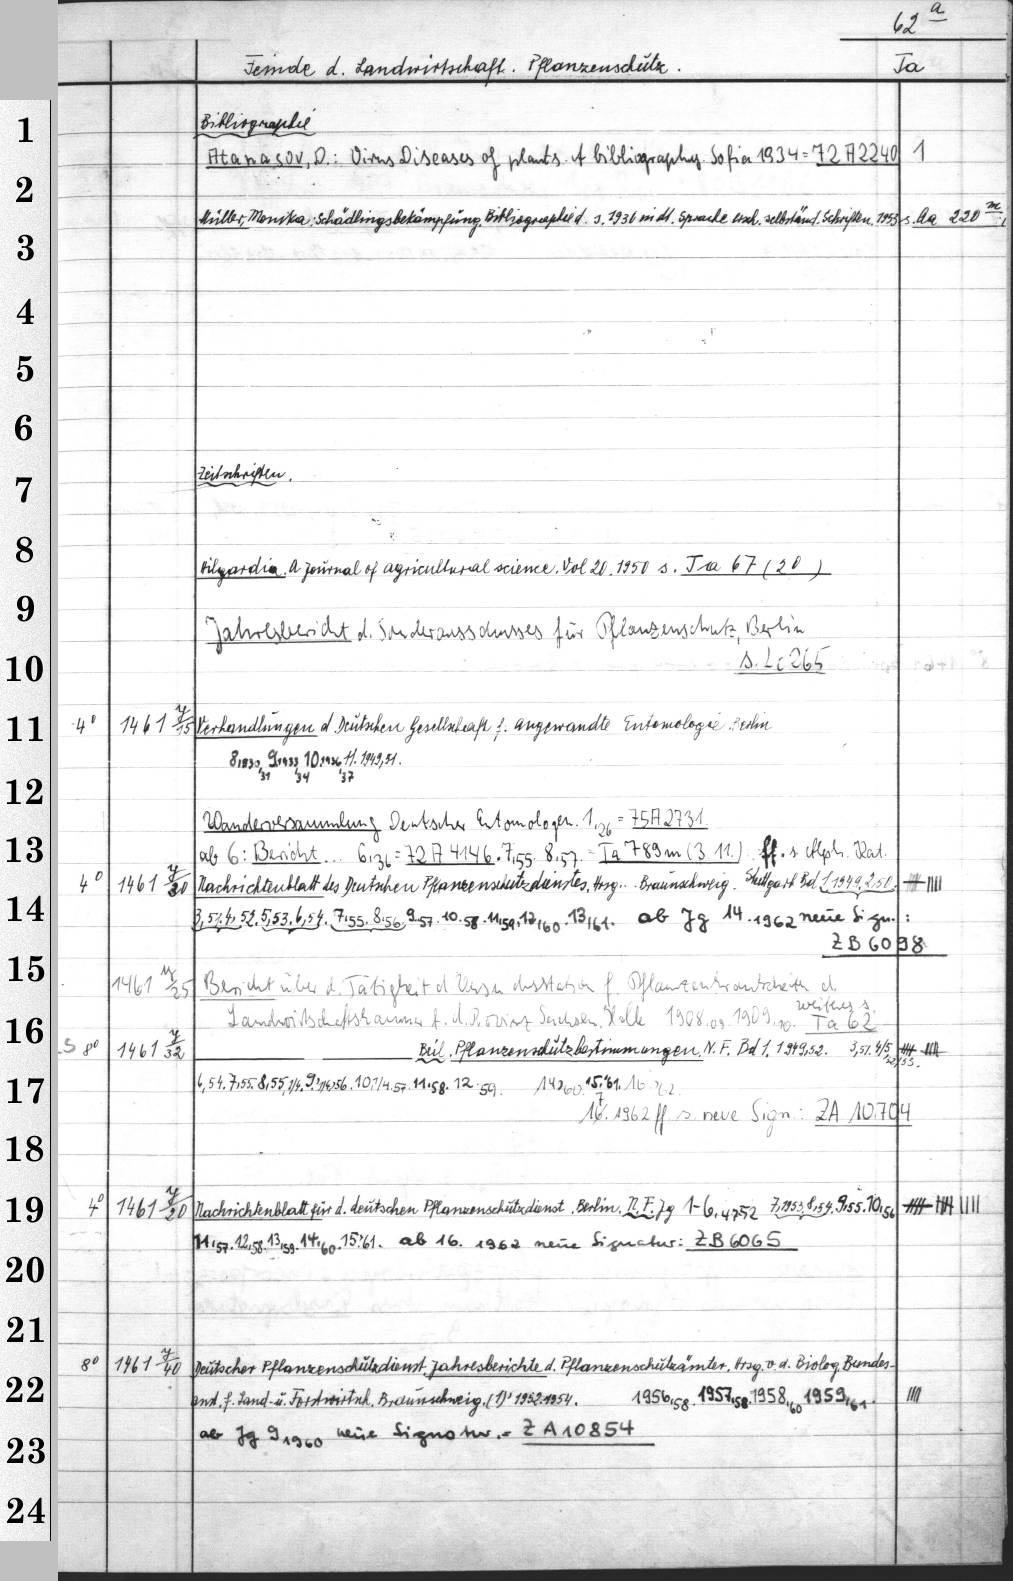 62 a
Feinde d. Landwirtschaft. Pflanzenschutz. Ta
1
Bibliographie
Atanasov, D.: Virus Diseases of plants. A bibliography. Sofia 1934 = 72 A 2240 1
2
Müller, Monika: Schädlingsbekämpfung. Bibliographie d. s. 1936 in dt. Sprache ersch. selbständ. Schriften. 1953 s. Aa 220 m
3
4
5
6
Zeitschriften.
7
8
Hilgardia. A journal of agricultural science. Vol 20. 1950 s. Ta 67 (20)
9
Jahresbericht d. Sonderausschusses für Pflanzenschutz, Berlin
10
s. Lc 265
11 4° 1461 y/15 Verhandlungen d. Deutschen Gesellschaft f. angewandte Entomologie. Berlin
8,1930,31 9,1933,34 10,1936,37 11.1949,51.
12
Wanderversammlung Deutscher Entomologen. 1,26 = 75 A 2731.
13
ab 6: Bericht... 6,36 = 72 A 4146. 7,55. 8,57. = Ta 789 m (3. 11.) ff. s. Alph. Kat.
4° 1461 y/20 Nachrichtenblatt des Deutschen Pflanzenschutzdienstes, Hrsg. Braunschweig. Stuttgart Bd 1,1949, 2,50.
14
3,51. 4,52. 5,53. 6,54. 7,55. 8,56, 9,57. 10,58. 11,59. 12,60. 13,61. ab Jg 14. 1962 neue Sign.:
ZB 6098
15
1461 y/25 Bericht über d. Tätigkeit d. Versuchsstation f. Pflanzenkrankheiten d.
Landwirtschaftskammer f. d. Provinz Sachsen, Halle 1908,09 1909,10. weiteres s. Ta 62
16
8° 1461 y/32 Beil. Pflanzenschutzbestimmungen. N. F. Bd 1. 1949,52. 3,51. 4/5
17
6,54. 7,55. 8,55, 9 56. 10 57. 11,58. 12,59. 14,60. 15,61. 16,62
17. 1962 ff s. neue Sign.: ZA 10.704
18
19 4° 1461 y/20 Nachrichtenblatt für d. deutschen Pflanzenschutzdienst. Berlin. N. F. Jg 1-6, 47-52 7,1953, 8,54. 9,55. 10,56
11,57. 12,58. 13,59. 14,60. 15,61. ab 16. 1962 neue Signatur: ZB 6065
20
21
8° 1461 y/40 Deutscher Pflanzenschutzdienst. Jahresberichte d. Pflanzenschutzämter, Hrsg. v. d. Biolog. Bundes-
22
anst. f. Land- u. Forstwirtsch. Braunschweig. (1) 1952. 1954. 1956,58. 1957,58. 1958,60 1959,61.
ab Jg 9 1960 neue Signatur. = ZA 10854
23
24